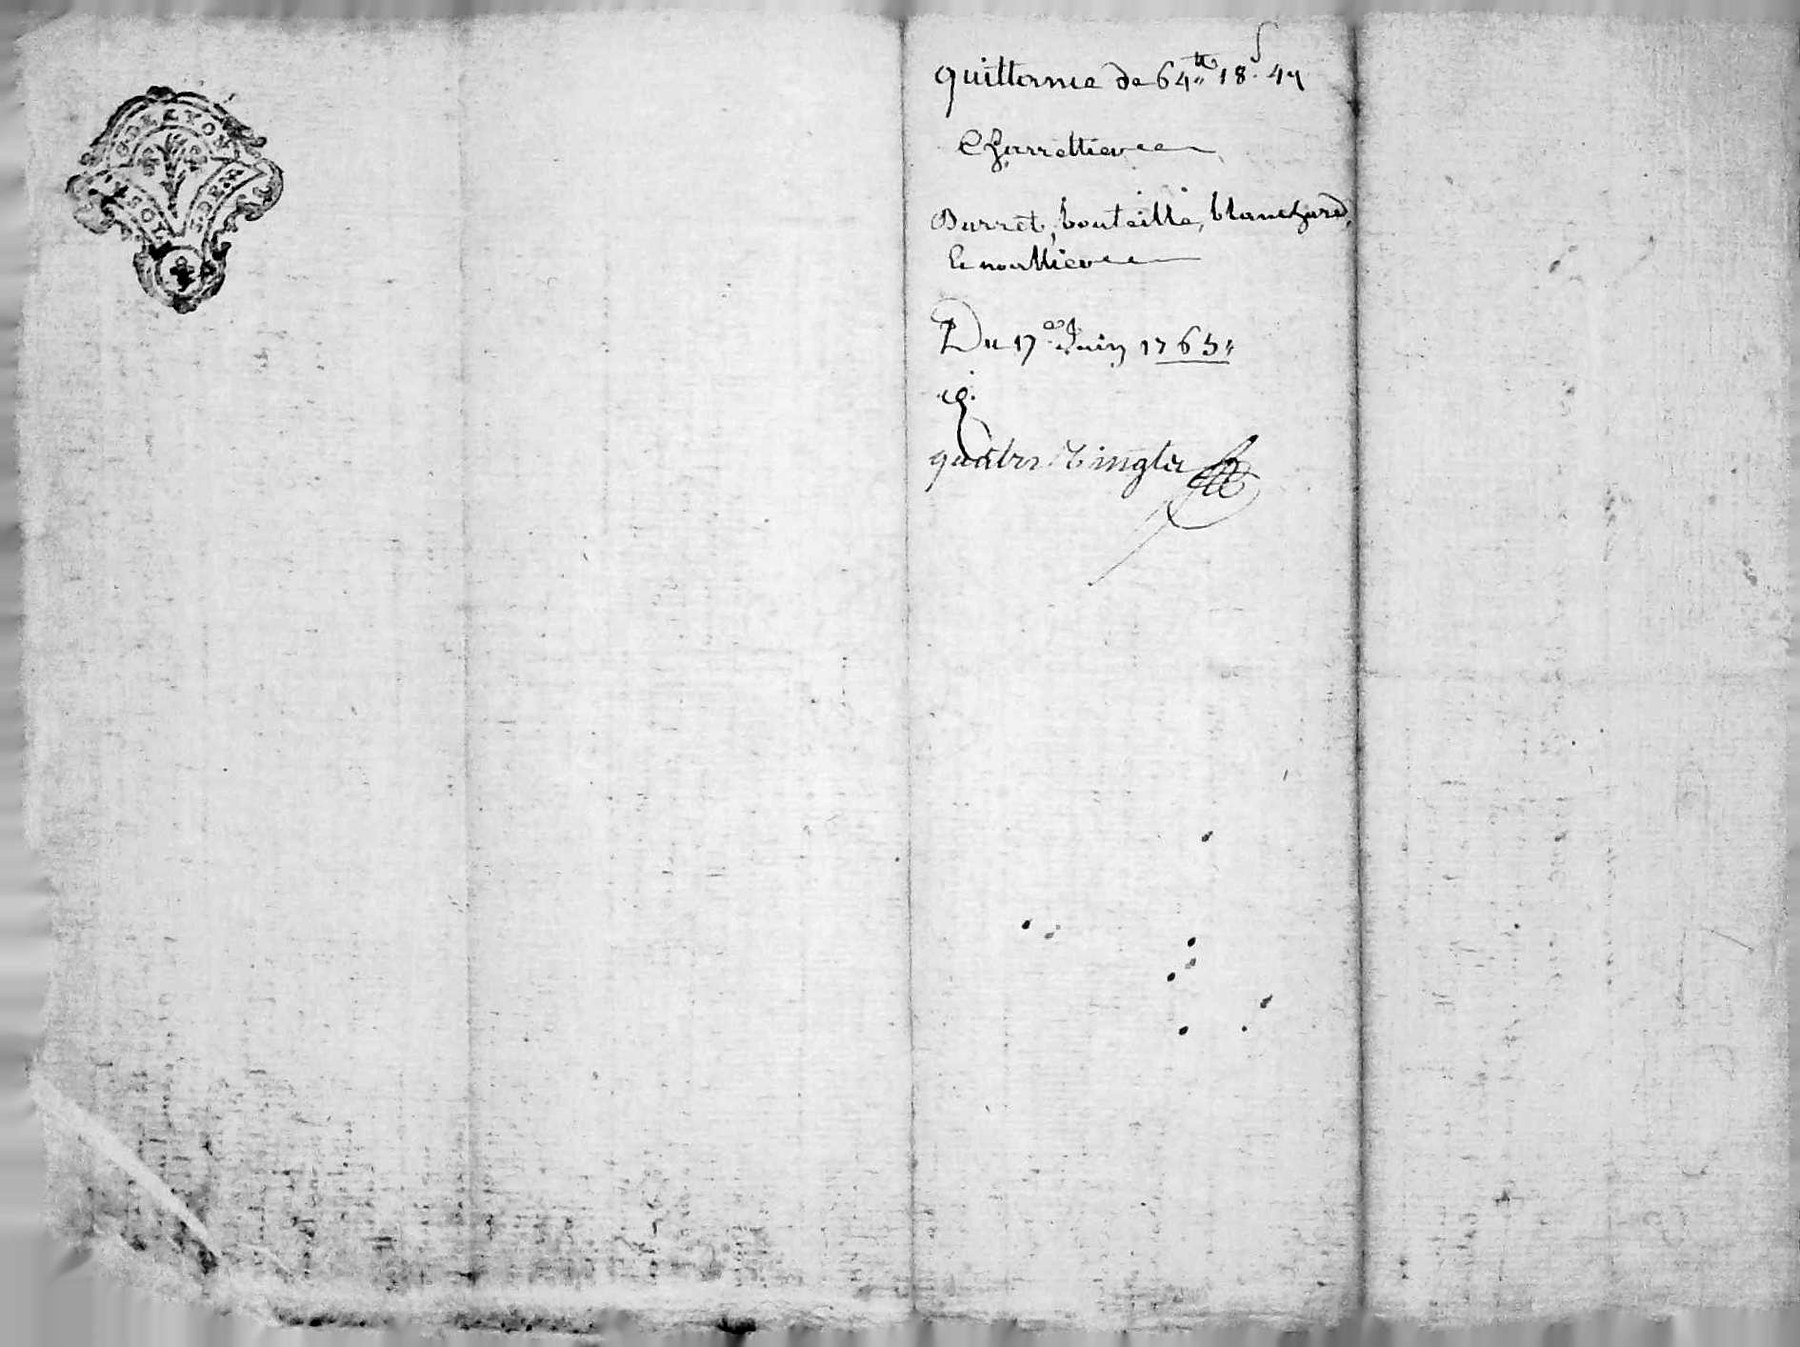 G. DE LYON
quittance de 64tt 18s 4d
Charrettier
Burret, bouteille, blanchard,
Lemattier
Du 17e Juin 1765
quatre Vingts